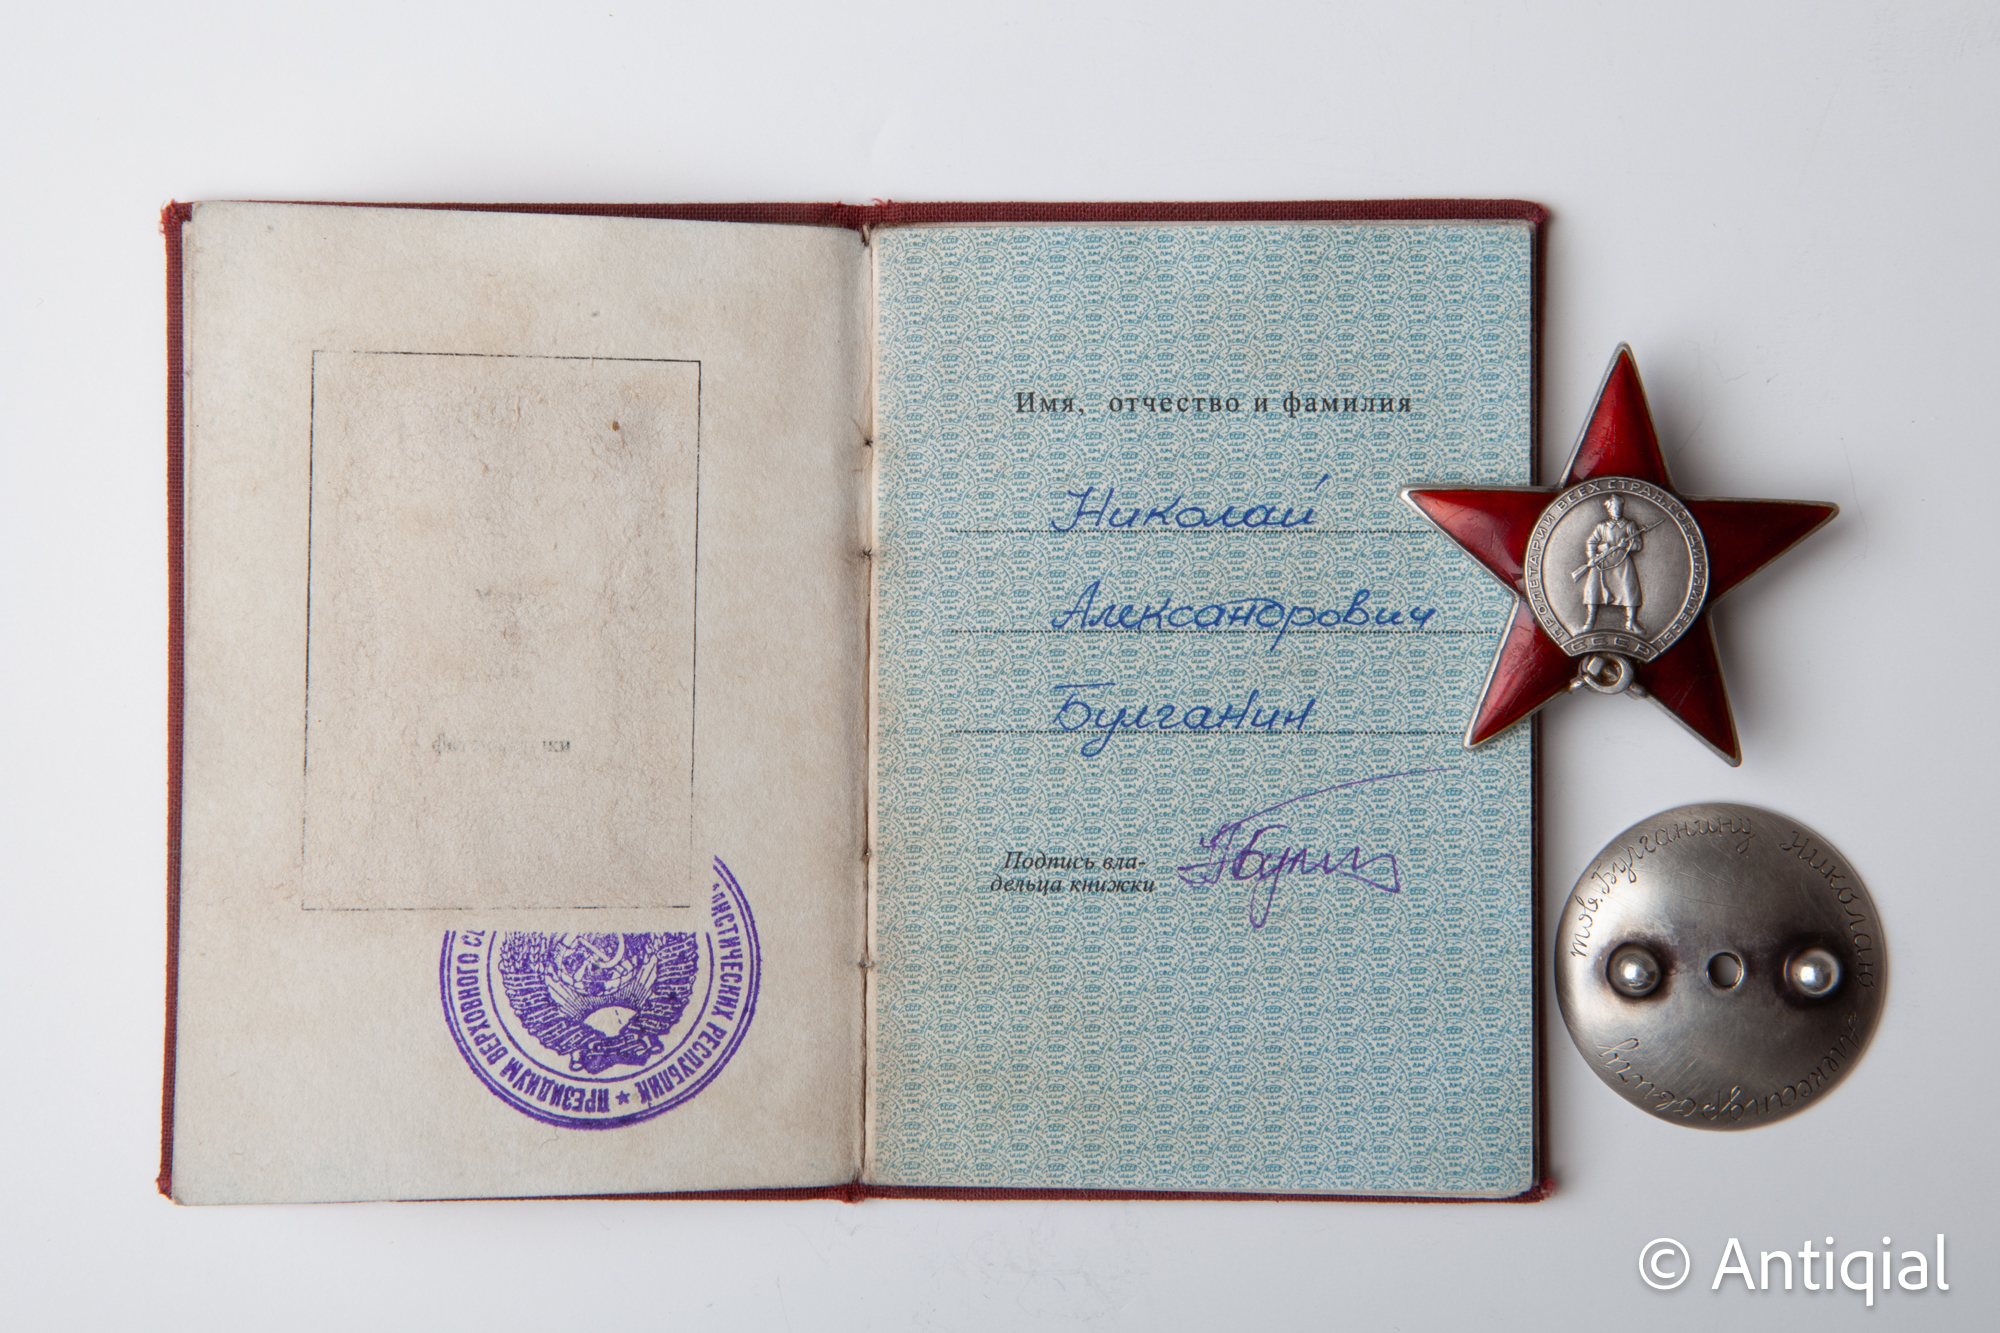 ПРЕЗИДИУМ ВЕРХОВНОГО
РЕСПУБЛИК
Имя, отчество и фамилия
Николай
Александрович
Булганин
Подпись вла-
дельца книжки
ПРОЛЕТАРИИ ВСЕХ СТРАН, СОЕДИНЯЙТЕСЬ!
СССР
тов. Булганину Николаю
Александровичу
© Antiqial